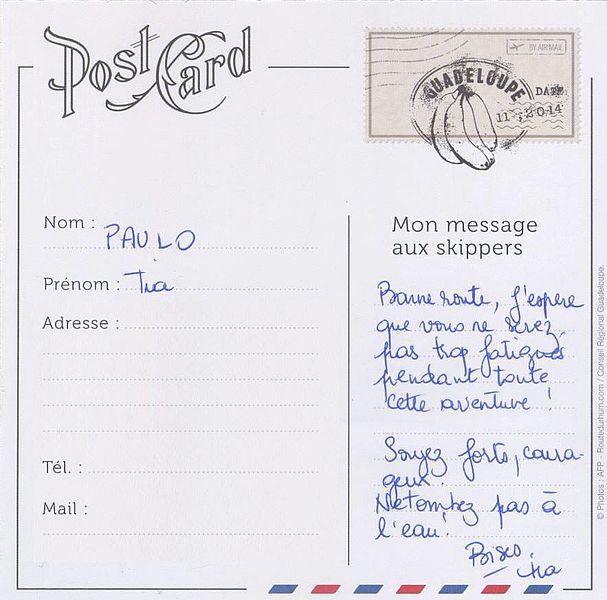 Post Card
BY AIR MAIL
GUADELOUPE
DATE
11 2014
Nom : PAULO
Prénom : Tia
Adresse :
Tél. :
Mail :
Mon message
aux skippers
Bonne route, j'espère
que vous ne serez
pas trop fatigués
pendant toute
cette aventure !
Soyez forts, coura-
geux.
Ne tombez pas à
l'eau.
Bises.
Tia
© Photos : AFP - Routedurhum.com / Conseil Régional Guadeloupe.